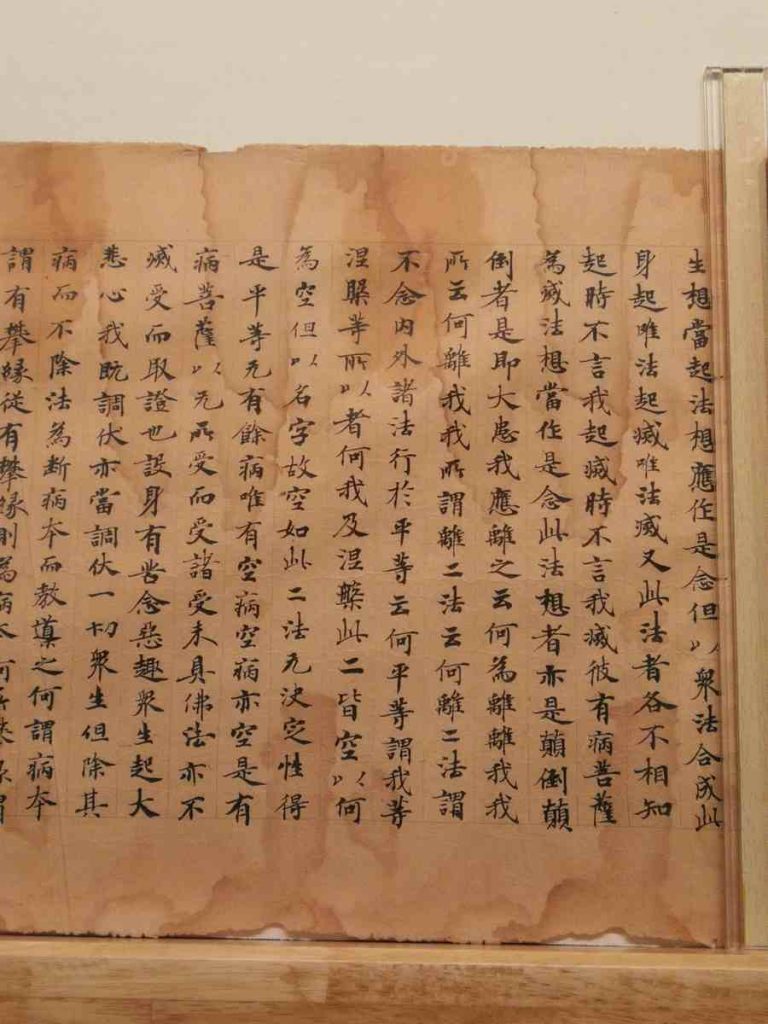 生想當起法想應作是念但以衆法合成此
身起唯法起滅唯法滅又此法者各不相知
起時不言我起滅時不言我滅彼有病菩薩
為滅法想當作是念此法想者亦是顛倒顛
倒者是即大患我應離之云何為離離我我
所云何離我我所謂離二法云何離二法謂
不念内外諸法行於平等云何平等謂我等
涅槃等所以者何我及涅槃此二皆空以何
為空但以名字故空如此二法无決定性得
是平等无有餘病唯有空病空病亦空是有
病菩薩以无所受而受諸受未具佛法亦不
滅受而取證也設身有苦念惡趣衆生起大
悲心我既調伏亦當調伏一切衆生但除其
病而不除法為斷病本而教導之何謂病本
謂有攀緣從有攀緣則為病本何所攀緣謂